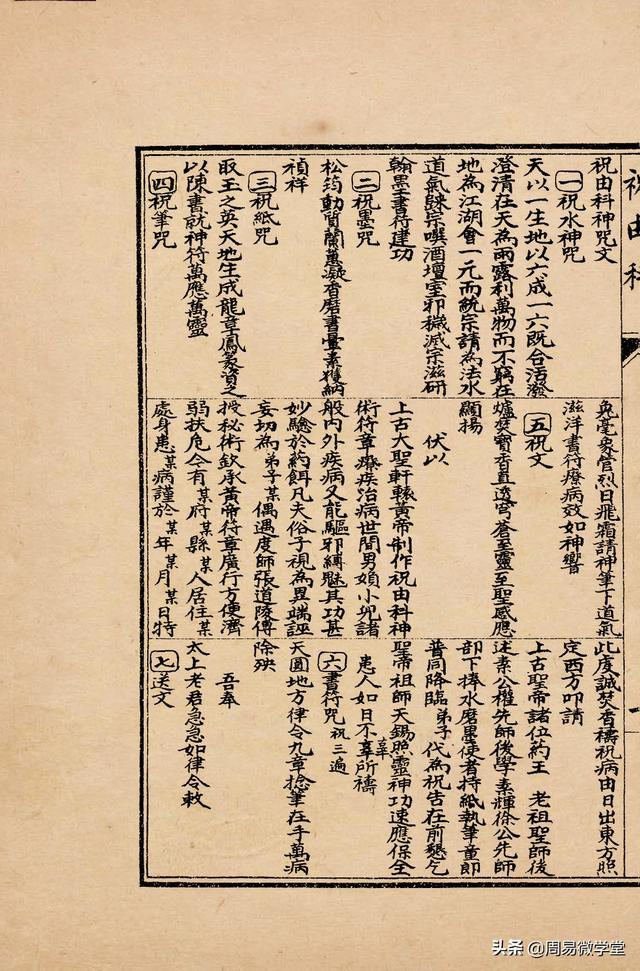 祝由科
一
祝由科神咒文
一祝水神咒
天以一生地以六成一六既合污潑
澄清在天為雨露利萬物而不窮在
地為江湖會一元而統宗請為法水
道氣隸宗噀酒壇室邪穢滅宗滋研
翰墨書符建功
二祝墨咒
松筠動質蘭蕙凝香磨書彙素獲納
禎祥
三祝紙咒
取玉之英天地生成龍章鳳篆資之
以陳書就神符萬應萬靈
四祝筆咒
兔毫象管烈日飛霜請神筆下道氣
滋洋書符療病效如神響
五祝文
爐焚寶香直透穹蒼至靈至聖感應
顯揚
伏以
上古大聖軒轅黃帝制作祝由科神
術符章療疾治病世間男婦小兒諸
般內外疾病又能驅邪縛魅其功甚
妙驗於药餌凡夫俗子視為異端誣
妄切為弟子某偶遇度師張道陵傳
授秘術欽承黃帝符章廣行方便濟
弱扶危今有某府某縣某人居住某
處身患某病謹於某年某月某日特
此虔誠焚香禱祝病由日出東方照
定西方叩請
上古聖帝諸位药王 老祖聖師後
述素公權先師後學素輝徐公先師
部下捧水磨墨使者持紙執筆童郎
普同降臨弟子代為祝告在前懇乞
聖帝祖師天錫照靈神功速應保全
患人如日不辜所禱
辜
六書符咒 祝三遍
天圓地方律令九章捻筆在手萬病
除殃
吾奉
太上老君急急如律令敕
七送文
头条 @周易微学堂